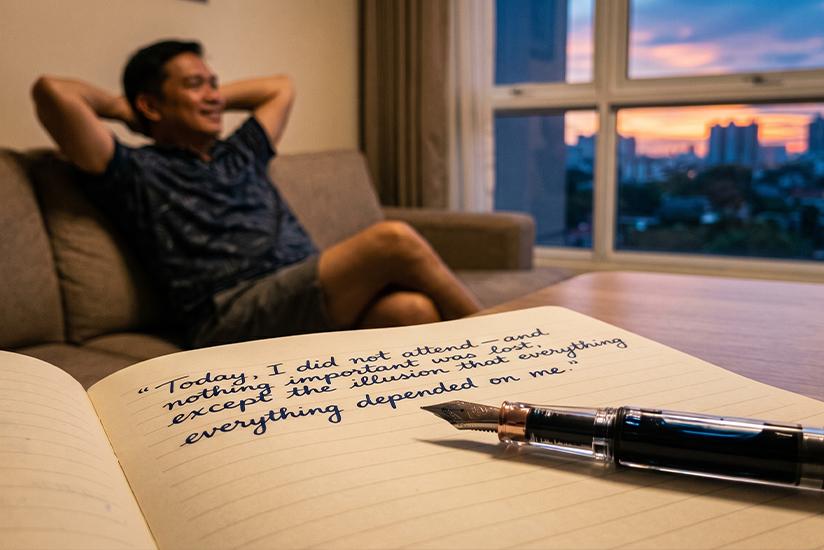 “Today, I did not attend—and
nothing important was lost,
except the illusion that everything
everything depended on me.”